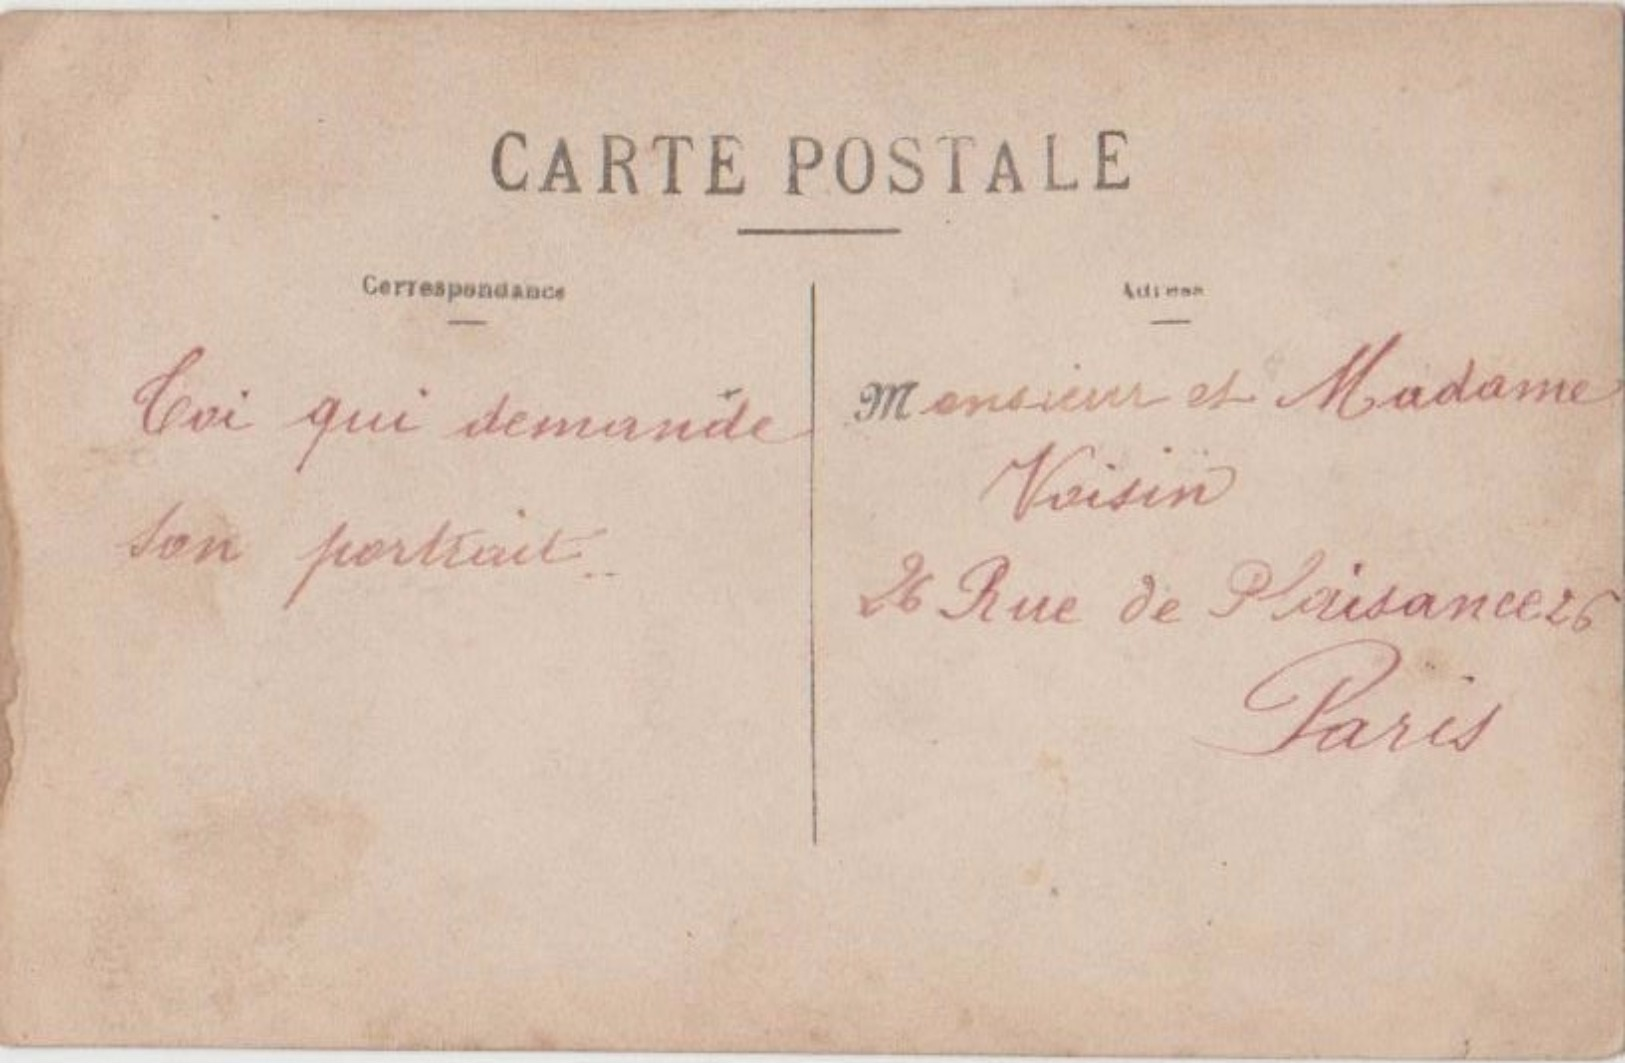 CARTE POSTALE
Correspondance
Toi qui demande
son portrait..
Adresse
Monsieur et Madame
Voisin
26 Rue de Plaisance 26
Paris